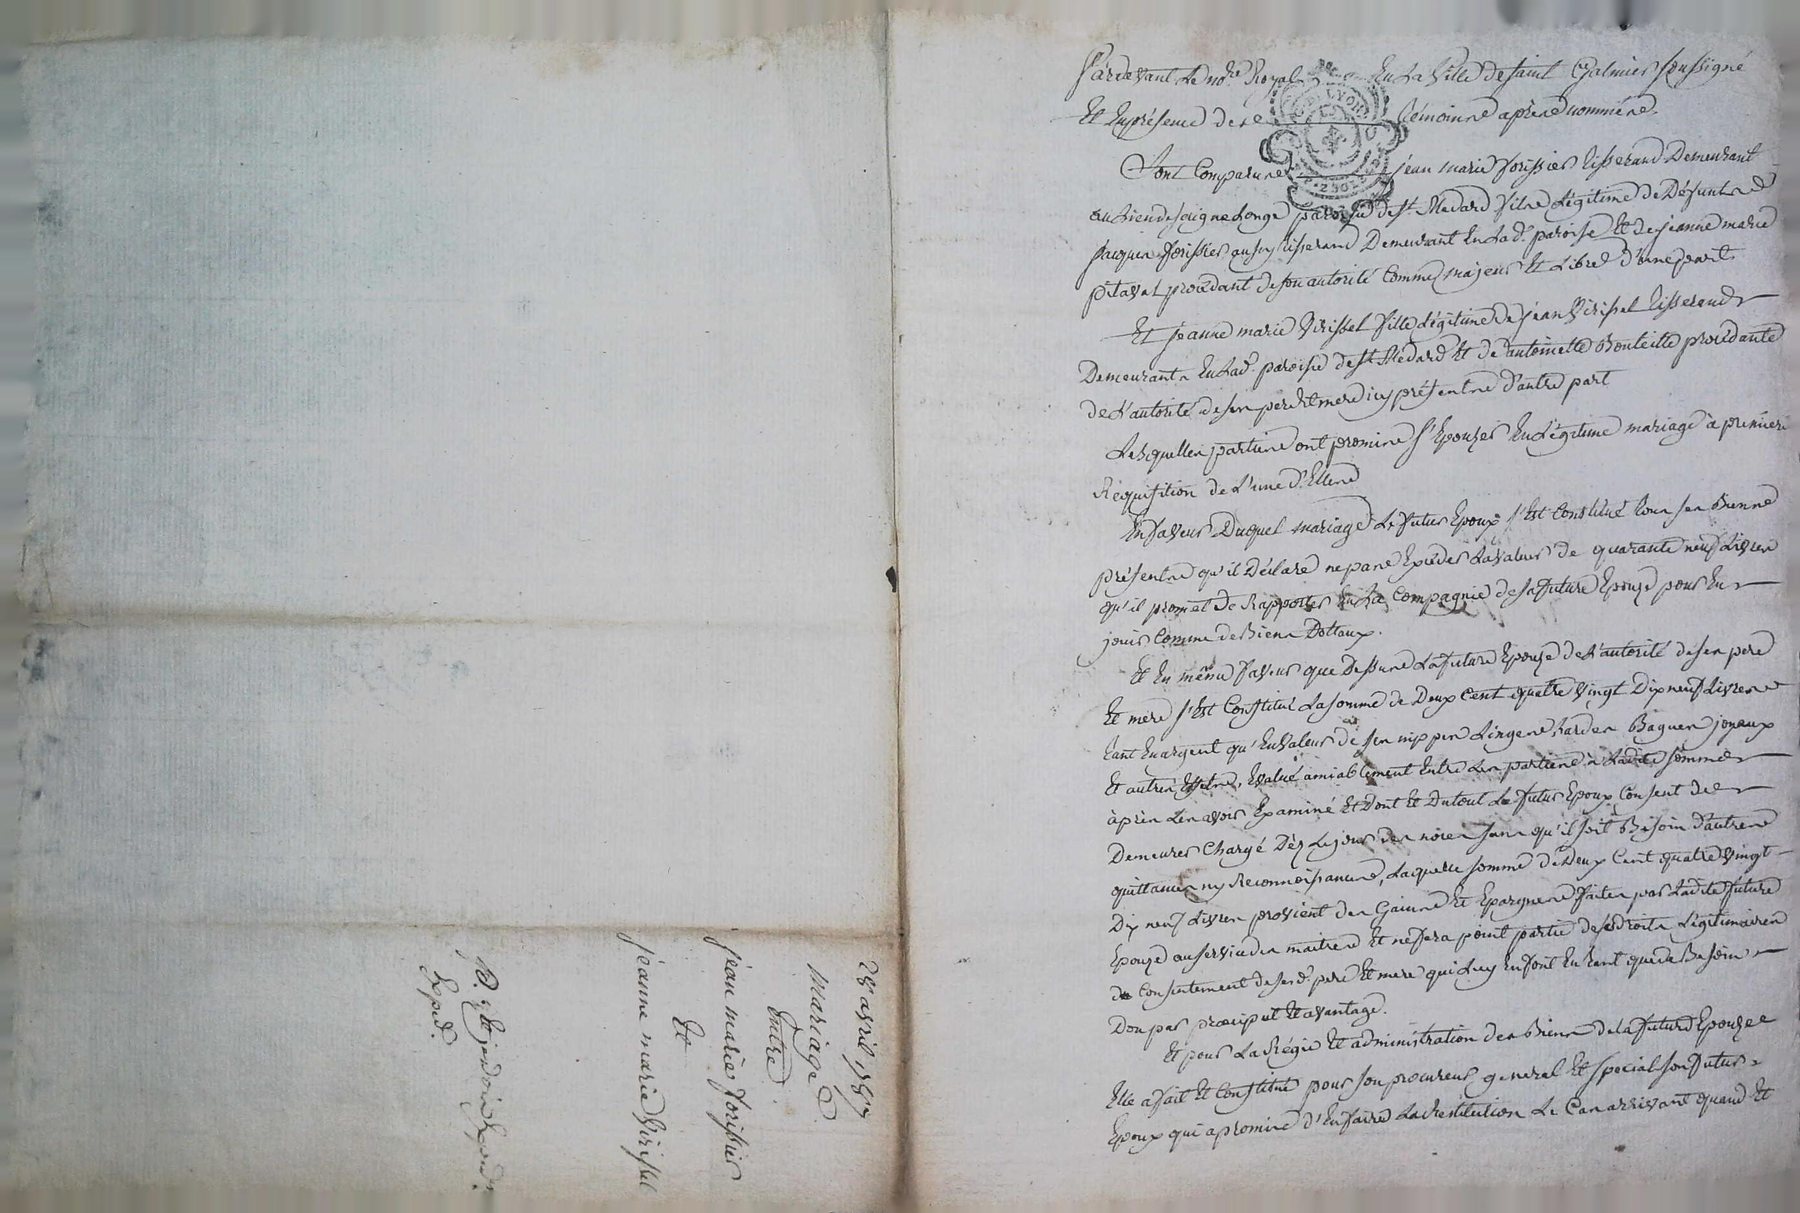 Pardevant Le no.re Royal En La Ville de saint Galmier soussigné
Et En présence de te témoins après nommés
Sont Comparus jean marie forissier tisserand Demeurant
au Lieu de paroisse de st. Medard fils Légitime de Défunt
jacques forissier aussy tisserand Demeurant En Lad.e paroisse Et de jeanne marie
pitaval procédant de son autorité Comme majeur Et Libre d'une part
Et jeanne marie Virissel fille Légitime de jean Virissel tisserand
Demeurants En Lad.e paroisse de st Medard Et de antoinette Bouteille procédante
de L'autorité de ses pere Et mere icy présents d'autre part
Lesquelles parties ont promis s'Epouzer En Légitime mariage à premiere
Réquisition de L'une d'Elles
En faveur Duquel mariage Le futur Epoux s'Est Constitué tous ses Biens
présents qu'il Déclare ne pas Excéder La valeur de quarante neuf Livres
qu'il promet de Rapporter En La Compagnie de sa future Epouze pour En
jouir Comme de Biens Dottaux.
Et En même faveur que Dessus La future Epouze de L'autorité de ses pere
Et mere s'Est Constitué La somme de Deux Cent quatre Vingt Dix neuf Livres
tant En argent qu'En Valeur de ses nippes Linges hardes Bagues joyaux
Et autres Effets, Evalué amiablement Entre Les parties à Ladite somme
après Les avoir Examiné Et Dont Et Du tout Le futur Epoux Consent de
Demeurer Chargé Dèz Le jour des noces sans qu'il soit Besoin d'autres
quittances ny Reconnoissances, Laquelle somme de Deux Cent quatre Vingt
Dix neuf Livres provient des Gains Et Epargnes faites par Ladite future
Epouze au service des maitres Et ne fera point partie de ses droits Légitimaires
du Consentement de sesd. pere Et mere qui Luy En font En tant que de Besoin
Don par préciput Et avantage.
Et pour La Régie Et administration des Biens de la future Epouze
Elle a fait Et Constitué pour son procureur general Et special son futur
Epoux qui a promis d'En faire La Restitution Le Cas arrivant quand Et
28 avril 1787
mariage
Entre
jean marie forissier
Et
jeanne marie Virissel
Exped.